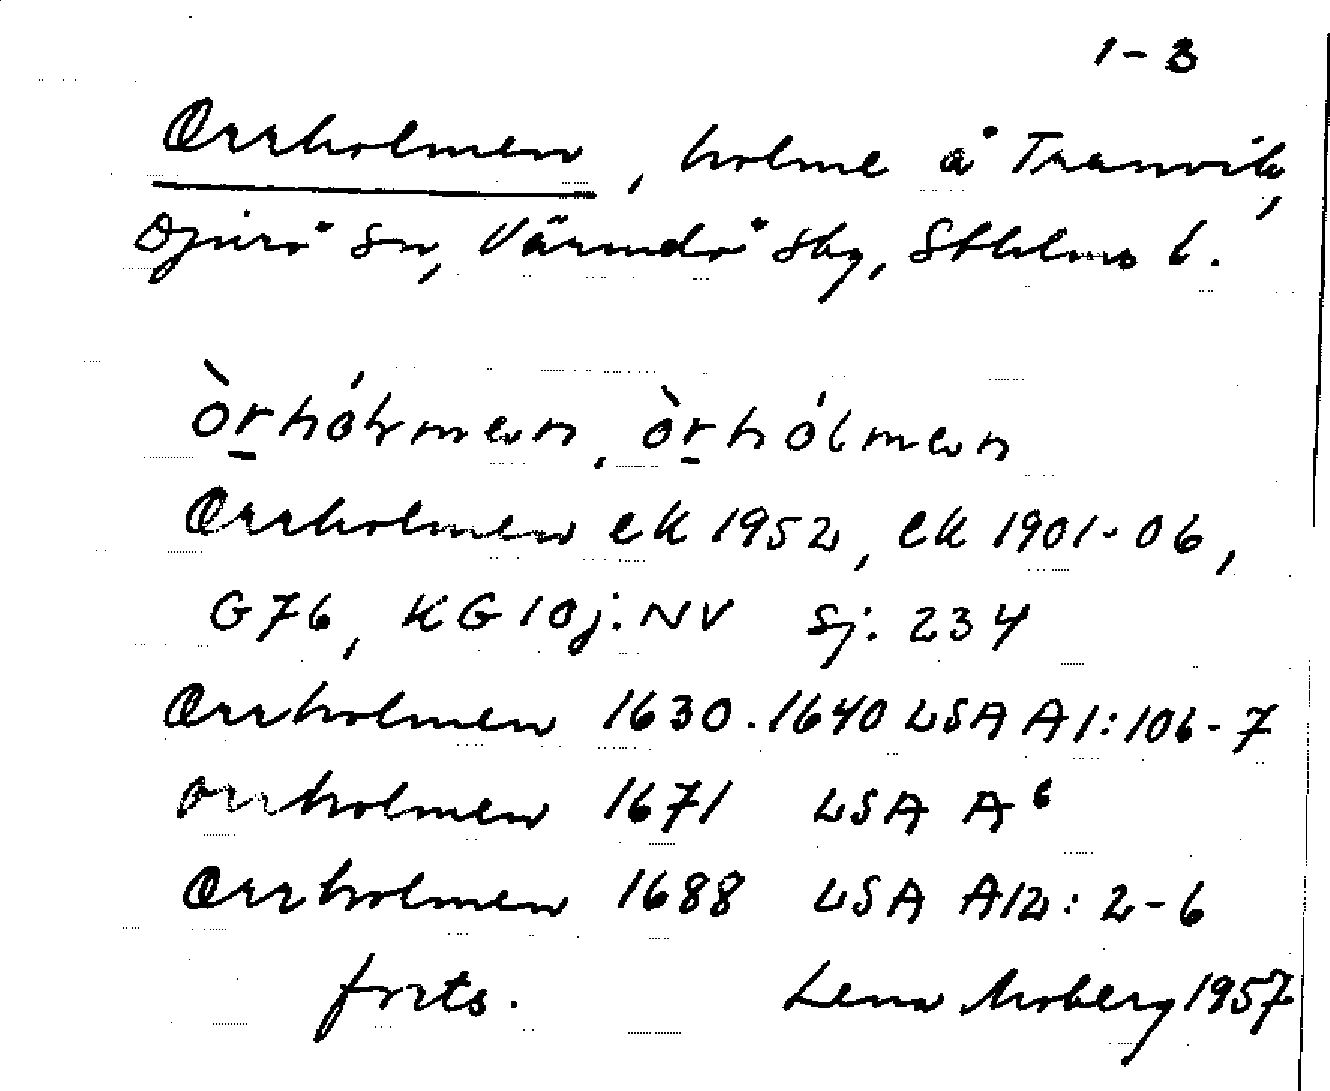 1-3
Orrholmen, holme å Tranvik,
Djurö sn, Värmdö skg, Sthlms l.
òrhółmen, òrhólmen
Orrholmen ek 1952, ek 1901-06,
G76, KG 10j. NV Sj. 234
Orrholmen 1630-1640 LSA A1:106-7
Orrholmen 1671 LSA A6
Orrholmen 1688 LSA A12:2-6
forts. Lena Moberg 1957